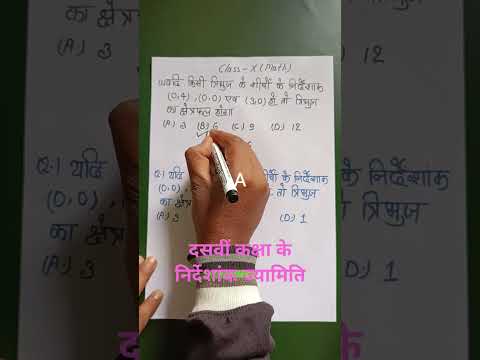 Class - X (Math)
यदि किसी त्रिभुज के शीर्षों के निर्देशांक
(0,4), (0,0) एवं (3,0) हो तो त्रिभुज
का क्षेत्रफल होगा
(A) 3 (B) 6 (C) 9 (D) 12
Q.1 यदि के निर्देशांक
(0,0), तो त्रिभुज
का
(A) 3 (D) 1
A
दसवीं कक्षा के
निर्देशांक ज्यामिति